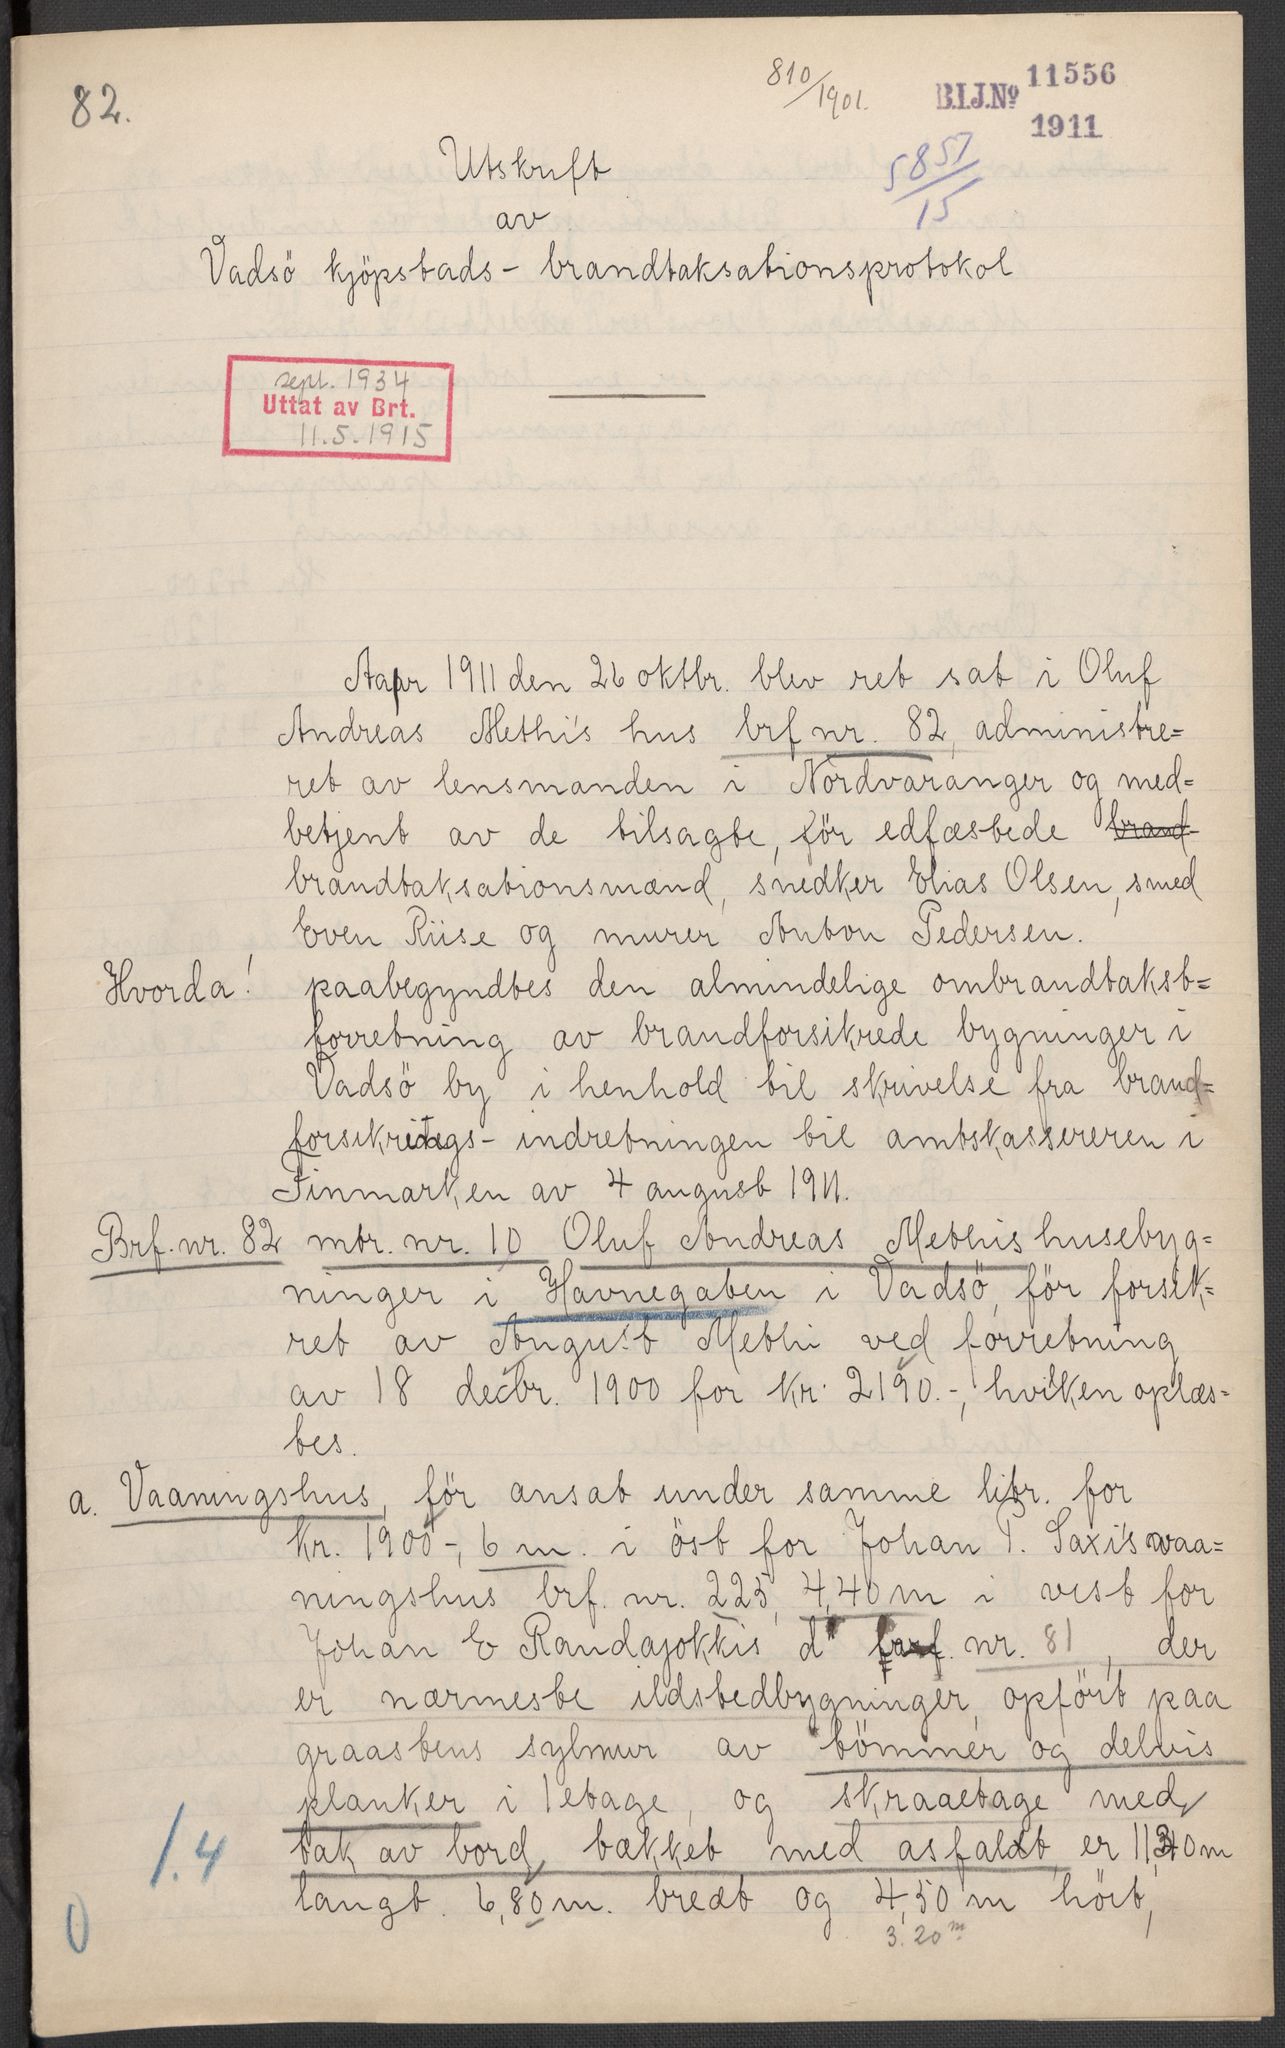 82.
810/1901.
B.I.J.No 11556
1911
5857/15
Utskrift
av
Vadsö kjöpstads- brandtaksationsprotokol
sept. 1934
Uttat av Brt.
11.5.1915
Aar 1911 den 26 oktbr. blev ret sat i Oluf
Andreas Methi's hus brf nr. 82, administre=
ret av lensmanden i Nordvaranger og med=
betjent av de tilsagte, för edfæstede brand-
brandtaksationsmænd, snedker Elias Olsen, smed
Even Riise og murer Anton Pedersen.
Hvorda! paabegyndtes den almindelige ombrandtakst=
forretning av brandforsikrede bygninger i
Vadsö by i henhold til skrivelse fra brand=
forsikrings- indretningen til amtskassereren i
Finmarken av 4 august 1911.
Brf. nr. 82 mtr. nr. 10 Oluf Andreas Methis husebyg=
ninger i Havnegaten i Vadsö, för forsik=
ret av August Methi ved forretning
av 18 decbr. 1900 for kr. 2190.-, hvilken oplæs=
tes.
a. Vaaningshus, för ansat under samme litr. for
kr. 1900-, 6 m. i öst for Johan P. Saxi's vaa=
ningshus brf. nr. 225, 4,40 m i vest for
Johan E Randajokkis do brf. nr. 81, der
er nærmeste ildstedbygninger, opfört paa
graastens sylmur av tömmer og delvis
planker i 1 etage, og skraaetage med
tak av bord, tækket med asfalt, er 11,30 m
langt. 6,80 m. bredt og 4,50 m höit,
3.20 m
1.4
0